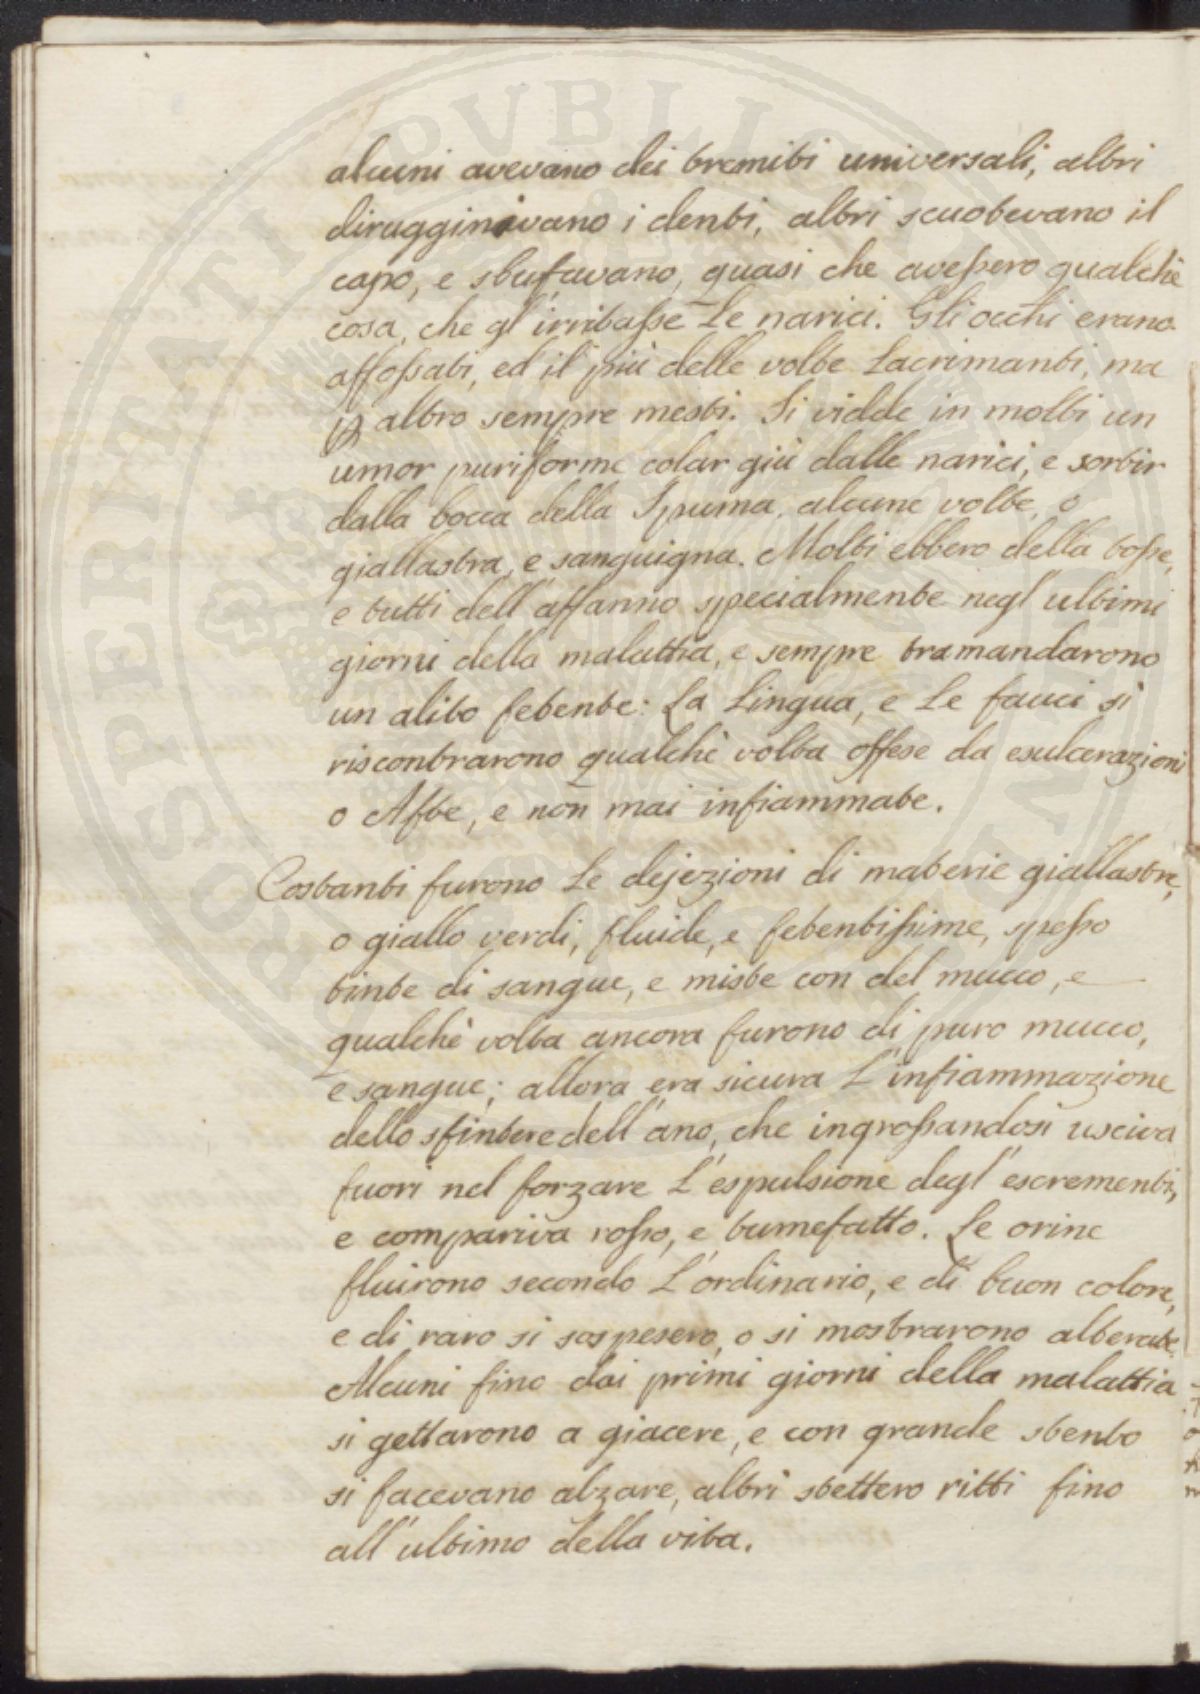 alcuni avevano dei tremiti universali, altri
dirugginivano i denti, altri scuotevano il
capo, e sbufavano, quasi che avessero qualchè
cosa, che gl'irritasse Le narici. Gli occhi erano
affossati, ed il più delle volte Lacrimanti, ma
p altro sempre mesti. Si vidde in molti un
umor puriforme colar giù dalle narici, e sortir
dalla bocca della Spuma, alcune volte, o
giallastra, e sanguigna. Molti ebbero della tosse,
e tutti dell'affanno specialmente negl'ultimi
giorni della malattia, e sempre tramandarono
un alito fetente: La Lingua, e Le fauci si
riscontrarono qualchè volta offese da esulcerazioni
o Afte, e non mai infiammate.
Costanti furono Le dejezioni di materie giallastre,
o giallo verdi, fluide, e fetentissime, spesso
tinte di sangue, e miste con del mucco, e
qualchè volta ancora furono di puro mucco,
e sangue; allora era sicura L'infiammazione
dello sfintere dell'ano, che ingrossandosi usciva
fuori nel forzare L'espulsione degl'escrementi,
e compariva rosso, e tumefatto. Le orine
fluirono secondo L'ordinario, e di buon colore,
e di raro si sospesero, o si mostrarono alterate.
Alcuni fino dai primi giorni della malattia
si gettarono a giacere, e con grande stento
si facevano alzare, altri stettero ritti fino
all'ultimo della vita.
PROSPERITATI PVBLICAE